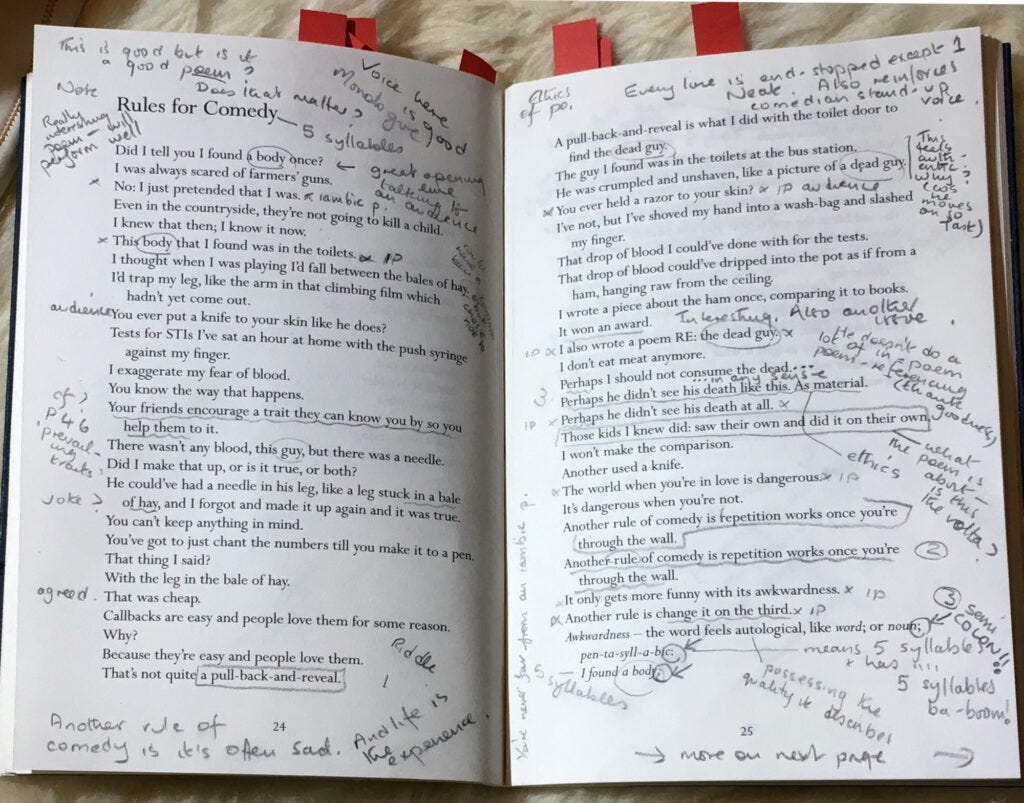 This is good but is it
a good poem?
Does that matter?
Note
Really
interesting
poem – will
perform well
Voice here
is good
Monologue
Rules for Comedy
5 syllables
Did I tell you I found a body once?
← great opening
line
talking to
an audience
I was always scared of farmers' guns.
x No: I just pretended that I was. x iambic p.
Even in the countryside, they're not going to kill a child.
I knew that then; I know it now.
x This body that I found was in the toilets. x IP
I thought when I was playing I'd fall between the bales of hay.
I'd trap my leg, like the arm in that climbing film which
hadn't yet come out.
audience
You ever put a knife to your skin like he does?
Tests for STIs I've sat an hour at home with the push syringe
against my finger.
I exaggerate my fear of blood.
You know the way that happens.
Your friends encourage a trait they can know you by so you
help them to it.
cf?
p46
There wasn't any blood, this guy, but there was a needle.
Did I make that up, or is it true, or both?
He could've had a needle in his leg, like a leg stuck in a bale
of hay, and I forgot and made it up again and it was true.
joke?
You can't keep anything in mind.
You've got to just chant the numbers till you make it to a pen.
That thing I said?
With the leg in the bale of hay.
agreed. That was cheap.
Callbacks are easy and people love them for some reason.
Why?
Because they're easy and people love them.
That's not quite a pull-back-and-reveal.
Riddle
Another rule of
comedy is it's often sad.
And life is
the experience.
24
Ethics
of po.
Every line is end-stopped except 1
Neat. Also reinforces
comedian stand-up
voice.
A pull-back-and-reveal is what I did with the toilet door to
find the dead guy.
The guy I found was in the toilets at the bus station.
He was crumpled and unshaven, like a picture of a dead guy.
This
feels
auth-
entic?
Why
(cos
he
moves
on so
fast)
x You ever held a razor to your skin? x IP audience
I've not, but I've shoved my hand into a wash-bag and slashed
my finger.
That drop of blood I could've done with for the tests.
That drop of blood could've dripped into the pot as if from a
ham, hanging raw from the ceiling.
I wrote a piece about the ham once, comparing it to books.
It won an award.
Interesting. Also another
issue.
IP x I also wrote a poem RE: the dead guy. x
I don't eat meat anymore.
He doesn't do a
lot of in-poem
poem-referencing
(thank
goodness)
Perhaps I should not consume the dead....
... in any sense
3. Perhaps he didn't see his death like this. As material.
IP x Perhaps he didn't see his death at all. x
Those kids I knew did: saw their own and did it on their own.
ethics
what
the poem is
about –
is this
the volta?
I won't make the comparison.
Another used a knife.
x The world when you're in love is dangerous. x IP
It's dangerous when you're not.
Another rule of comedy is repetition works once you're
through the wall.
Another rule of comedy is repetition works once you're
through the wall.
2
x It only gets more funny with its awkwardness. x IP
x Another rule is change it on the third. x IP
3
semi
colon!!
Awkwardness – the word feels autological, like word; or noun;
pen-ta-syll-a-bic;
← means 5 syllables
+ has 5 syllables
ba-boom!
– I found a body;
5
syllables
possessing the
quality it describes
You're never far from an iambic p.
25
→ more on next page →